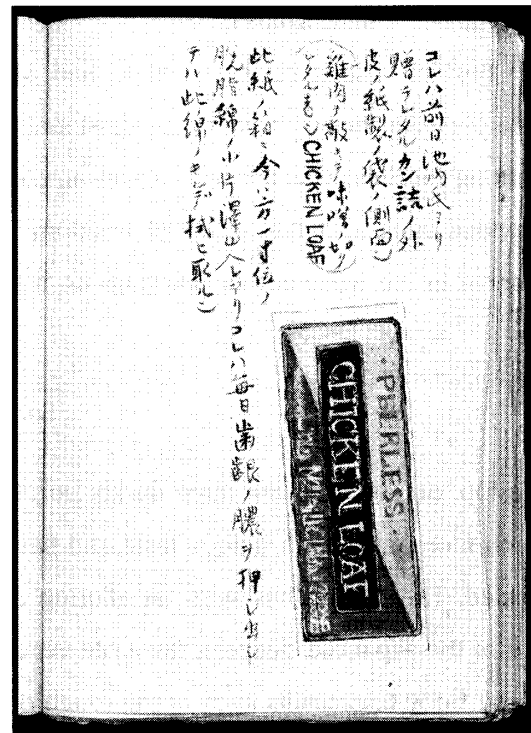 コレハ前日池内氏ヨリ
贈ラレタルカン詰ノ外
皮ノ紙製ノ袋ノ側面
雞肉ヲ敲キテ味噌ノ如ク
シタル者 CHICKEN LOAF
此紙ノ箱ニ今ハ方一寸位ノ
脱脂綿ノ小片澤山入レアリコレハ毎日歯齦ノ膿ヲ押シ出シ
テハ此綿ノキレデ拭ヒ取ル
PEERLESS
CHICKEN LOAF